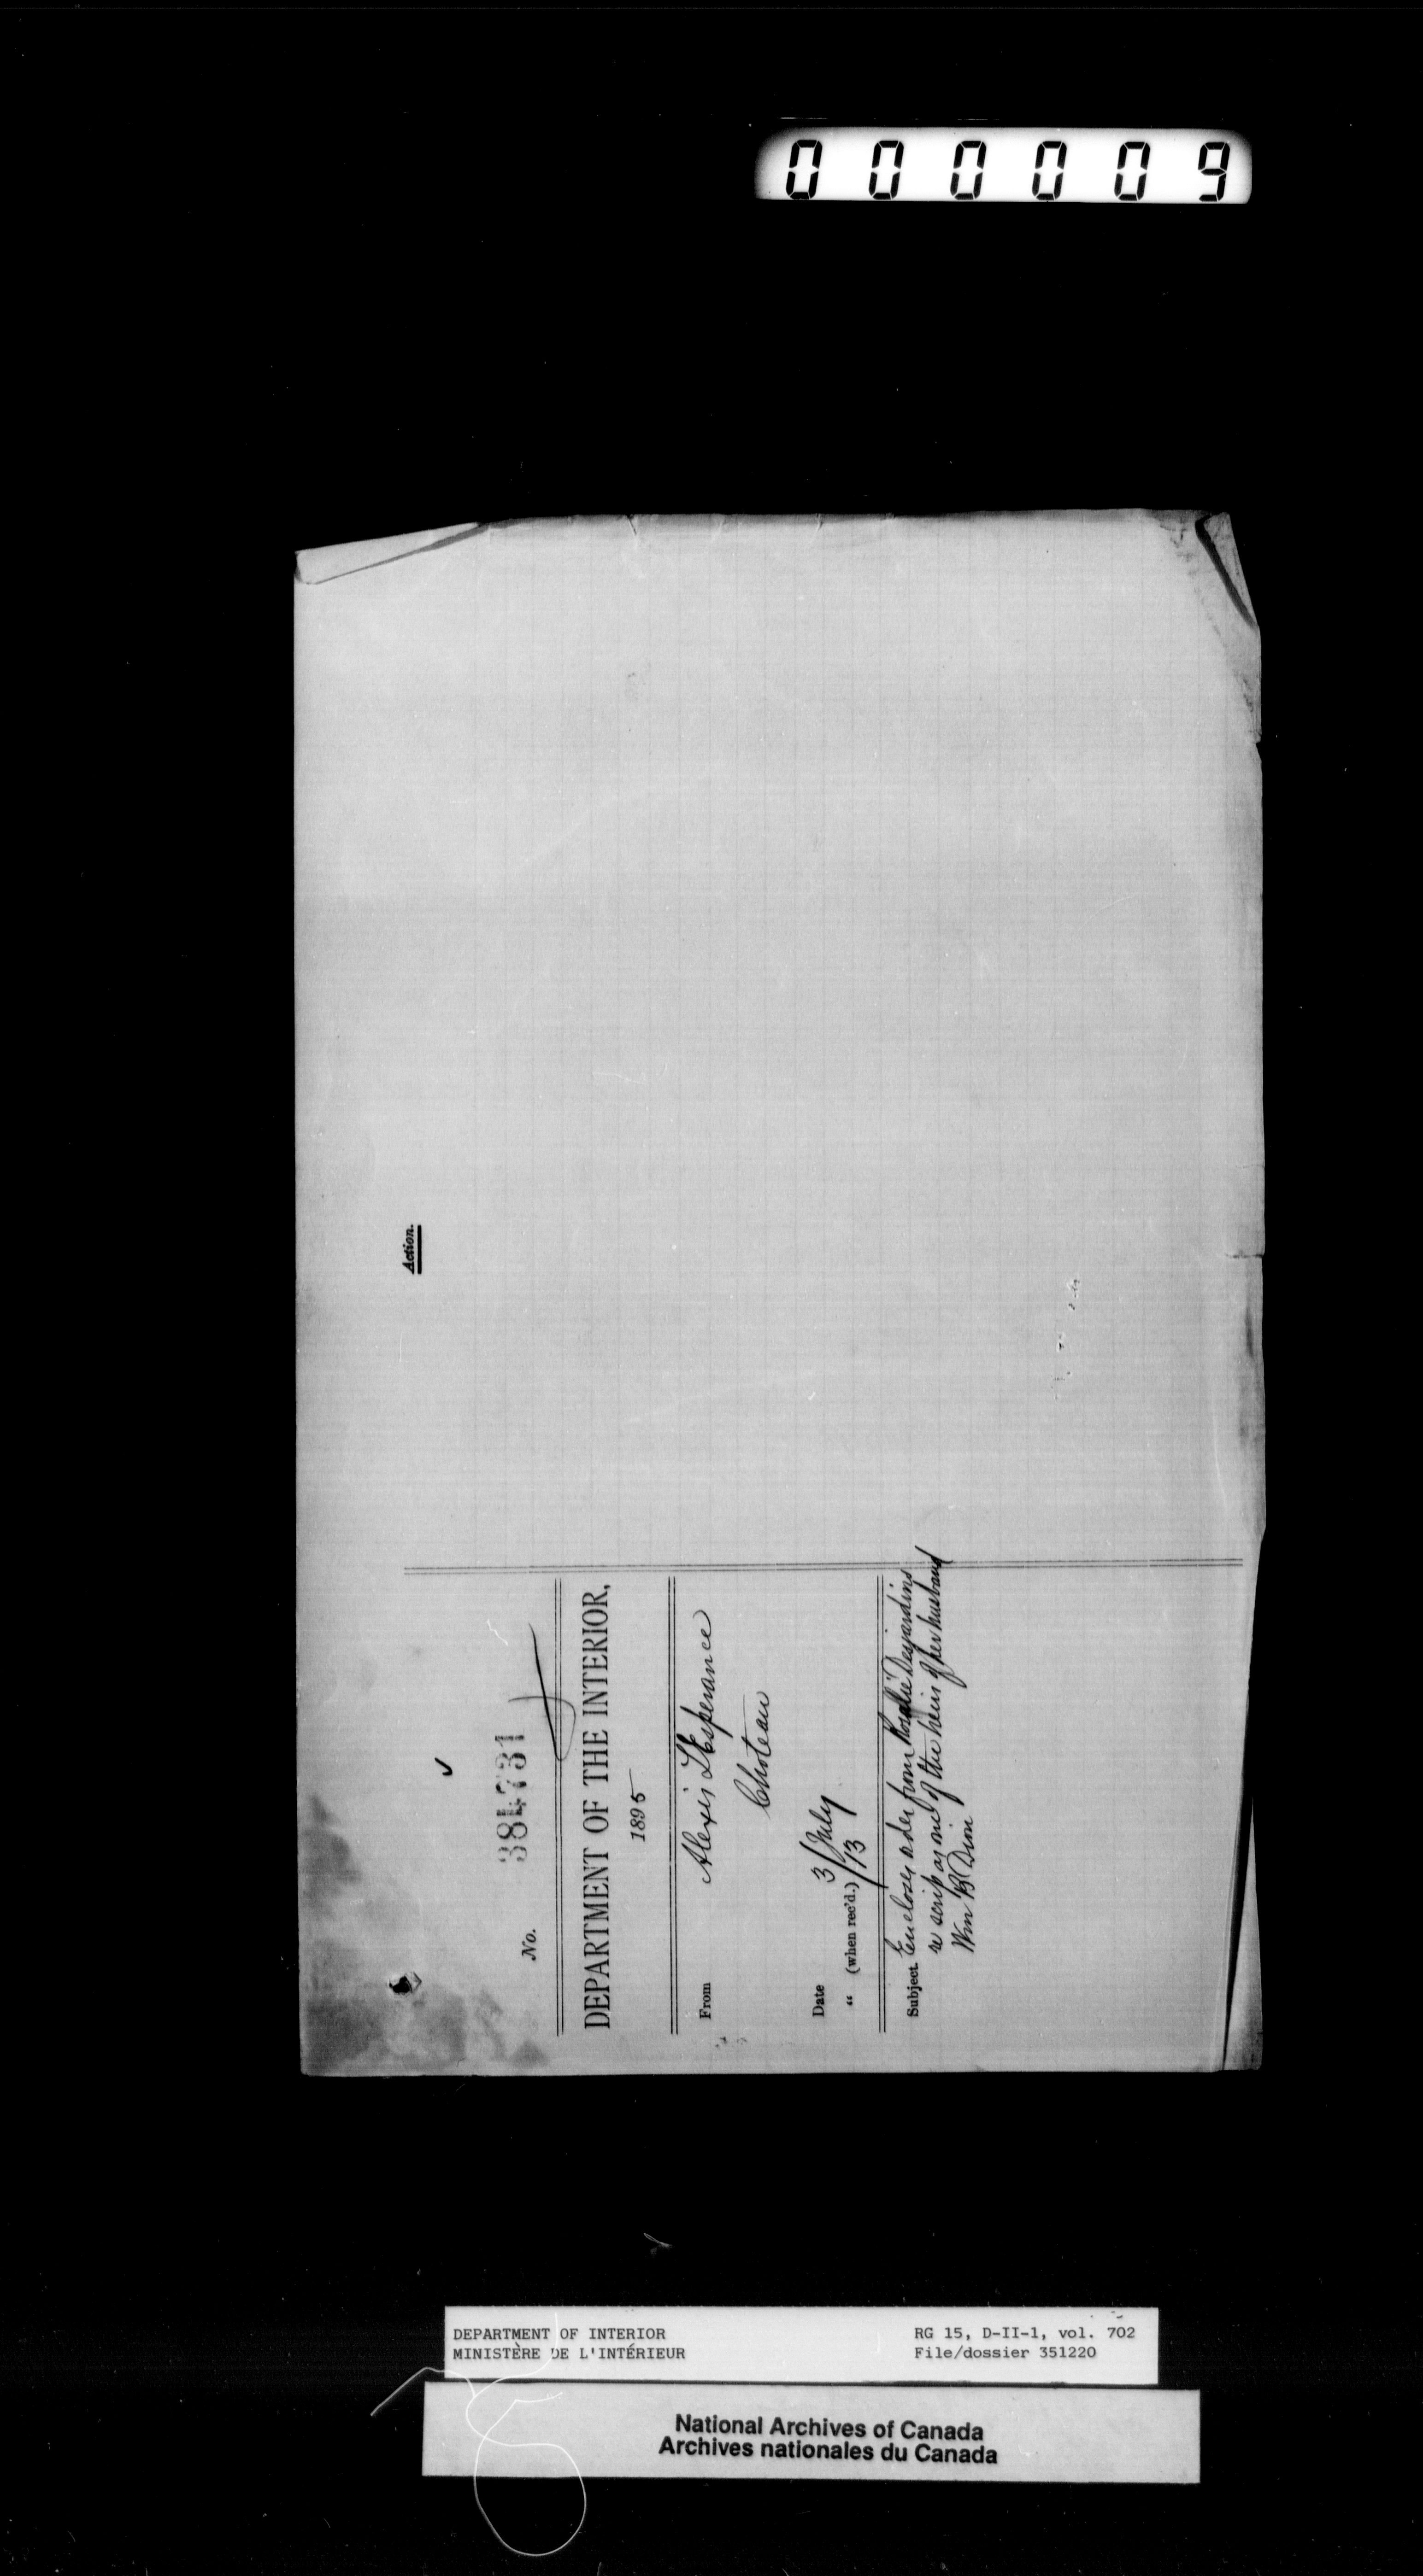 000009
Action.
No. 384731
DEPARTMENT OF THE INTERIOR,
1895
From Alexis L'Esperance
Choteau
Date 3/July
" (when rec'd.) /13
Subject. Encloses ader from Rosalie Desjardins
re scrip as one of the heirs of her husband
Wm B Dion
DEPARTMENT OF INTERIOR
MINISTÈRE DE L'INTÉRIEUR
RG 15, D-II-1, vol. 702
File/dossier 351220
National Archives of Canada
Archives nationales du Canada